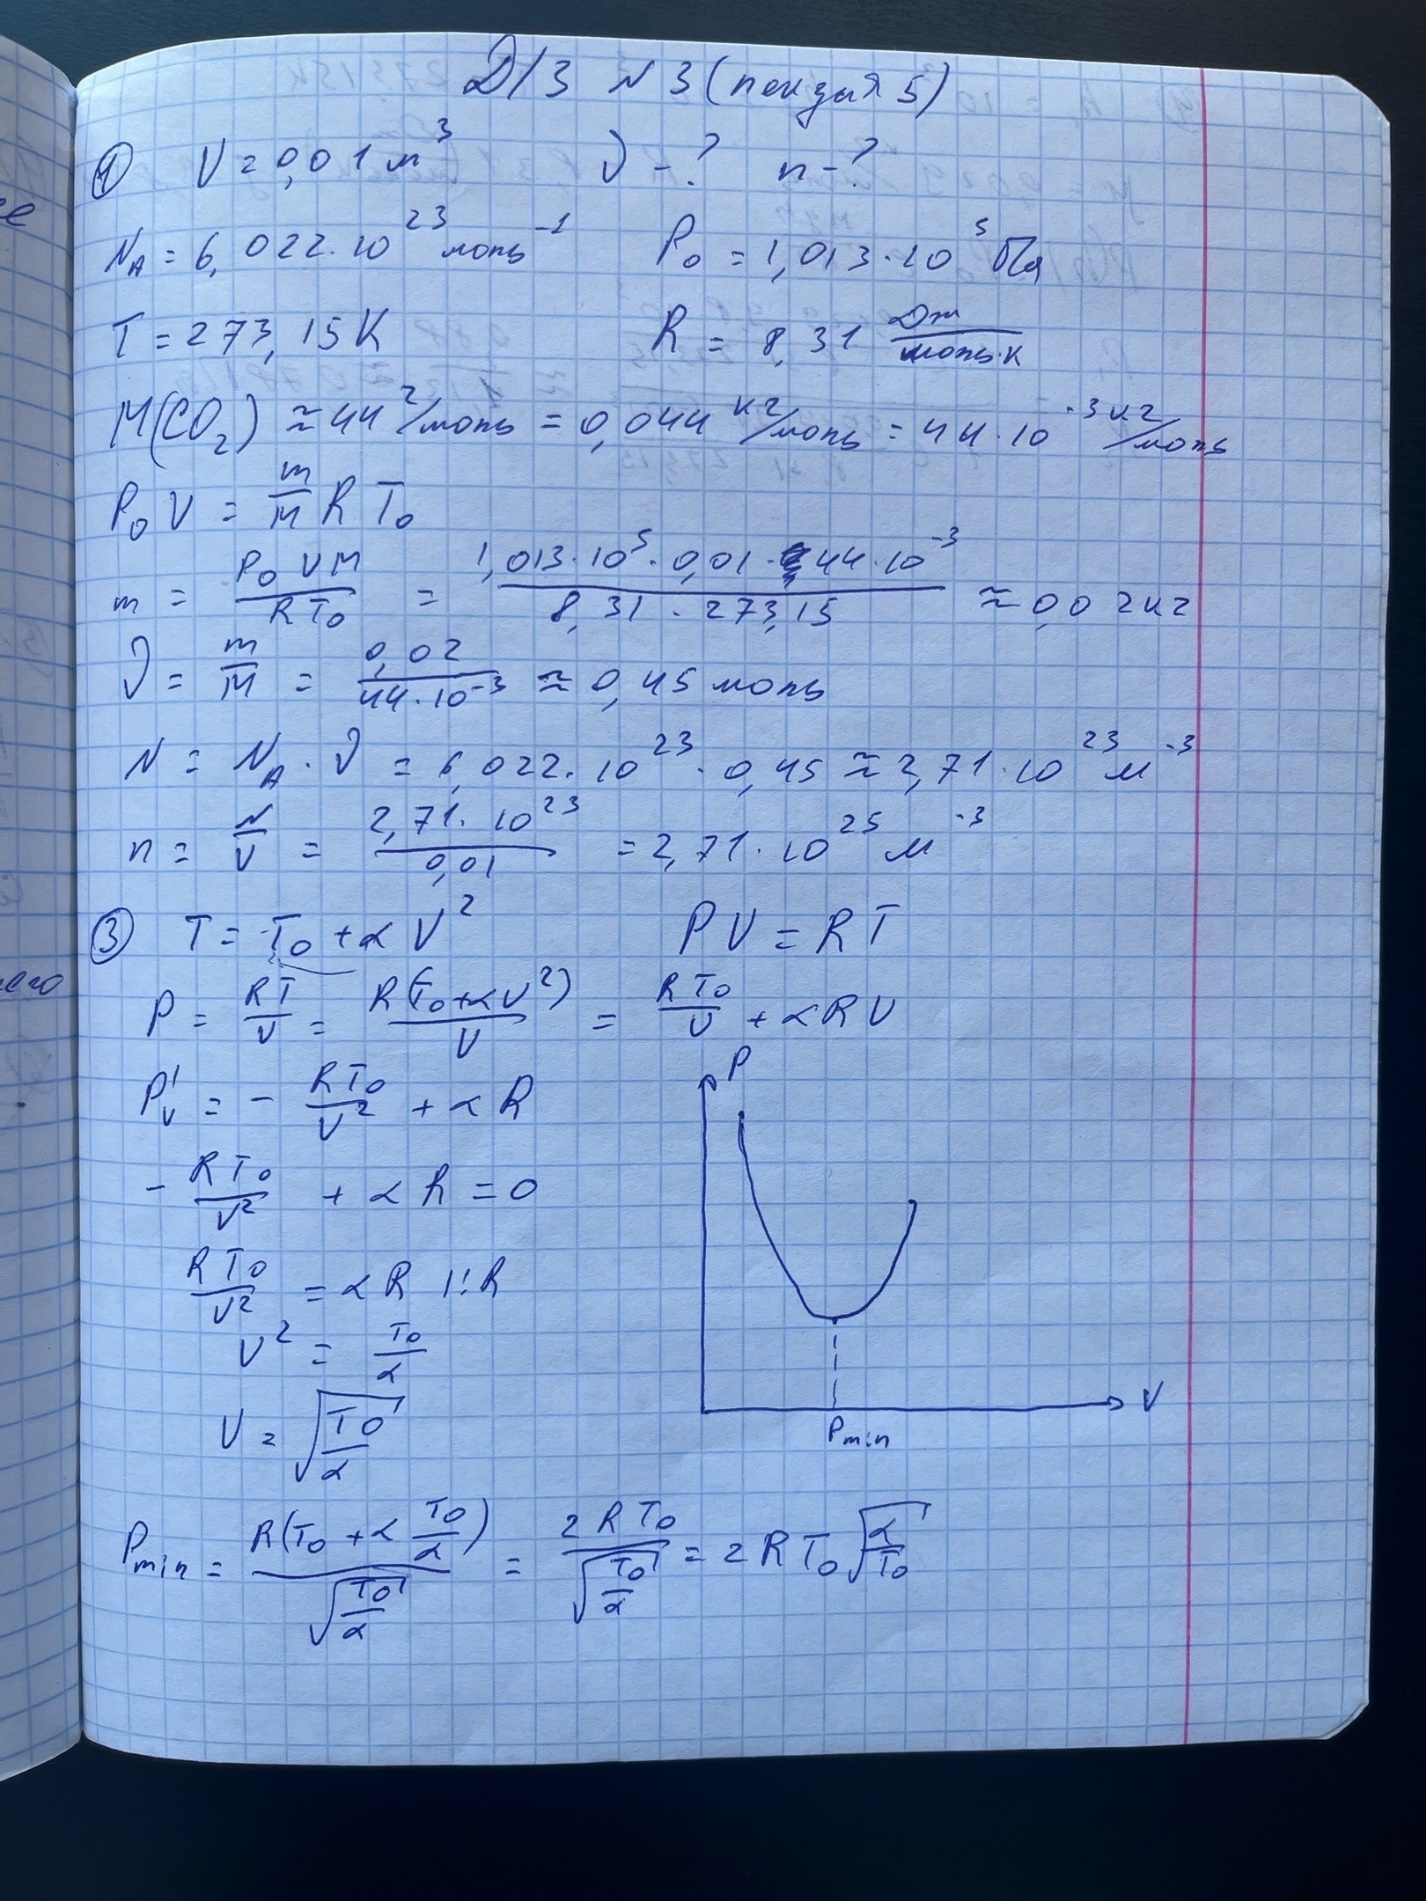 Д/З №3 (лекция 5)
① V = 0,01 м³ ν - ? n - ?
N_A = 6,022·10²³ моль⁻¹ P₀ = 1,013·10⁵ Па
T = 273,15 К R = 8,31 Дж/(моль·К)
M(CO₂) ≈ 44 г/моль = 0,044 кг/моль = 44·10⁻³ кг/моль
P₀V = m/M RT₀
m = P₀VM/RT₀ = (1,013·10⁵·0,01·44·10⁻³)/(8,31·273,15) ≈ 0,02 кг
ν = m/M = 0,02/(44·10⁻³) ≈ 0,45 моль
N = N_A·ν = 6,022·10²³·0,45 ≈ 2,71·10²³ м⁻³
n = N/V = (2,71·10²³)/0,01 = 2,71·10²⁵ м⁻³
③ T = T₀ + αV² PV = RT
P = RT/V = R(T₀+αV²)/V = RT₀/V + αRV
P'_V = - RT₀/V² + αR
P
- RT₀/V² + αR = 0
RT₀/V² = αR |:R
V² = T₀/α
V
V = √(T₀/α)
P min
P min = R(T₀ + α T₀/α)/√(T₀/α) = 2RT₀/√(T₀/α) = 2RT₀√(α/T₀)